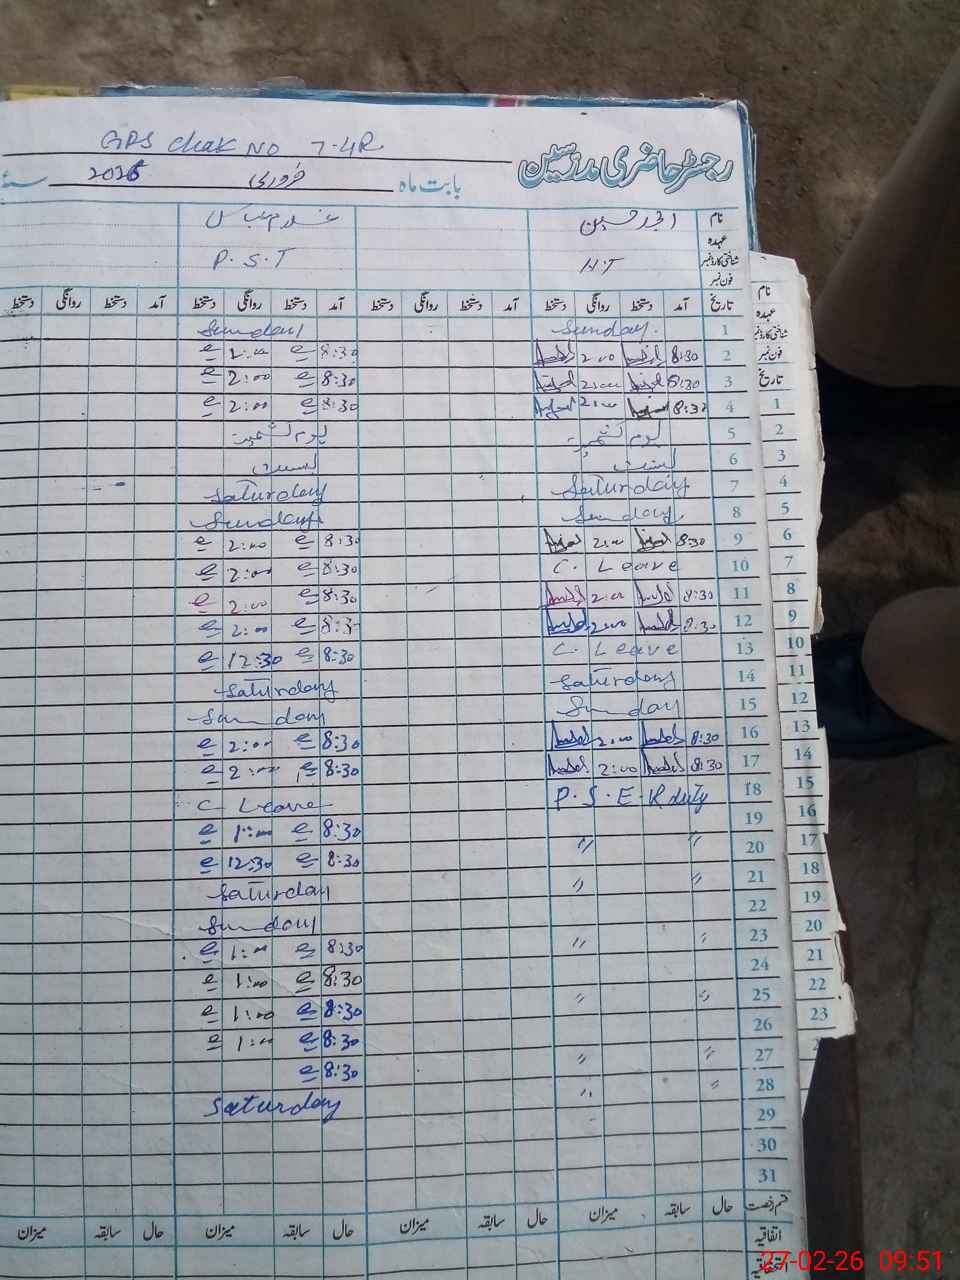 رجسٹر حاضری مدرسین
GPS Chak NO 7-4R
بابت ماہ فروری 2026 سنۂ
نام
عہدہ
شناختی کارڈ نمبر
فون نمبر
H.T
غلام عباس
P.S.T
تاریخ آمد دستخط روانگی دستخط آمد دستخط روانگی دستخط آمد دستخط روانگی دستخط آمد دستخط روانگی دستخط
1 Sunday. Sunday
2 8:30 2:00 8:30 2:00
3 8:30 2:00 8:30 2:00
4 8:30 2:00 8:30 2:00
5 یوم کشمیر یوم کشمیر
6 بسنت بسنت
7 Saturday Saturday
8 Sunday Sunday
9 8:30 2:00 8:30 2:00
10 C. Leave 8:30 2:00
11 8:30 2:00 8:30 2:00
12 8:30 2:00 8:3 2:00
13 C. Leave 8:30 12:30
14 Saturday Saturday
15 Sunday Sunday
16 8:30 2:00 8:30 2:00
17 8:30 2:00 8:30 2:00
18 P.S.E.R duty C Leave
19 8:30 1:00
20 〃 〃 8:30 12:30
21 〃 〃 Saturday
22 Sunday
23 〃 〃 8:30 1:00
24 8:30 1:00
25 〃 〃 8:30 1:00
26 8:30 1:00
27 〃 〃 8:30
28 〃 〃 Saturday
29
30
31
قسم رخصت حال سابقہ میزان حال سابقہ میزان حال سابقہ میزان حال سابقہ میزان
اتفاقیہ
نام
عہدہ
شناختی کارڈ نمبر
فون نمبر
تاریخ
1
2
3
4
5
6
7
8
9
10
11
12
13
14
15
16
17
18
19
20
21
22
23
27-02-26 09:51